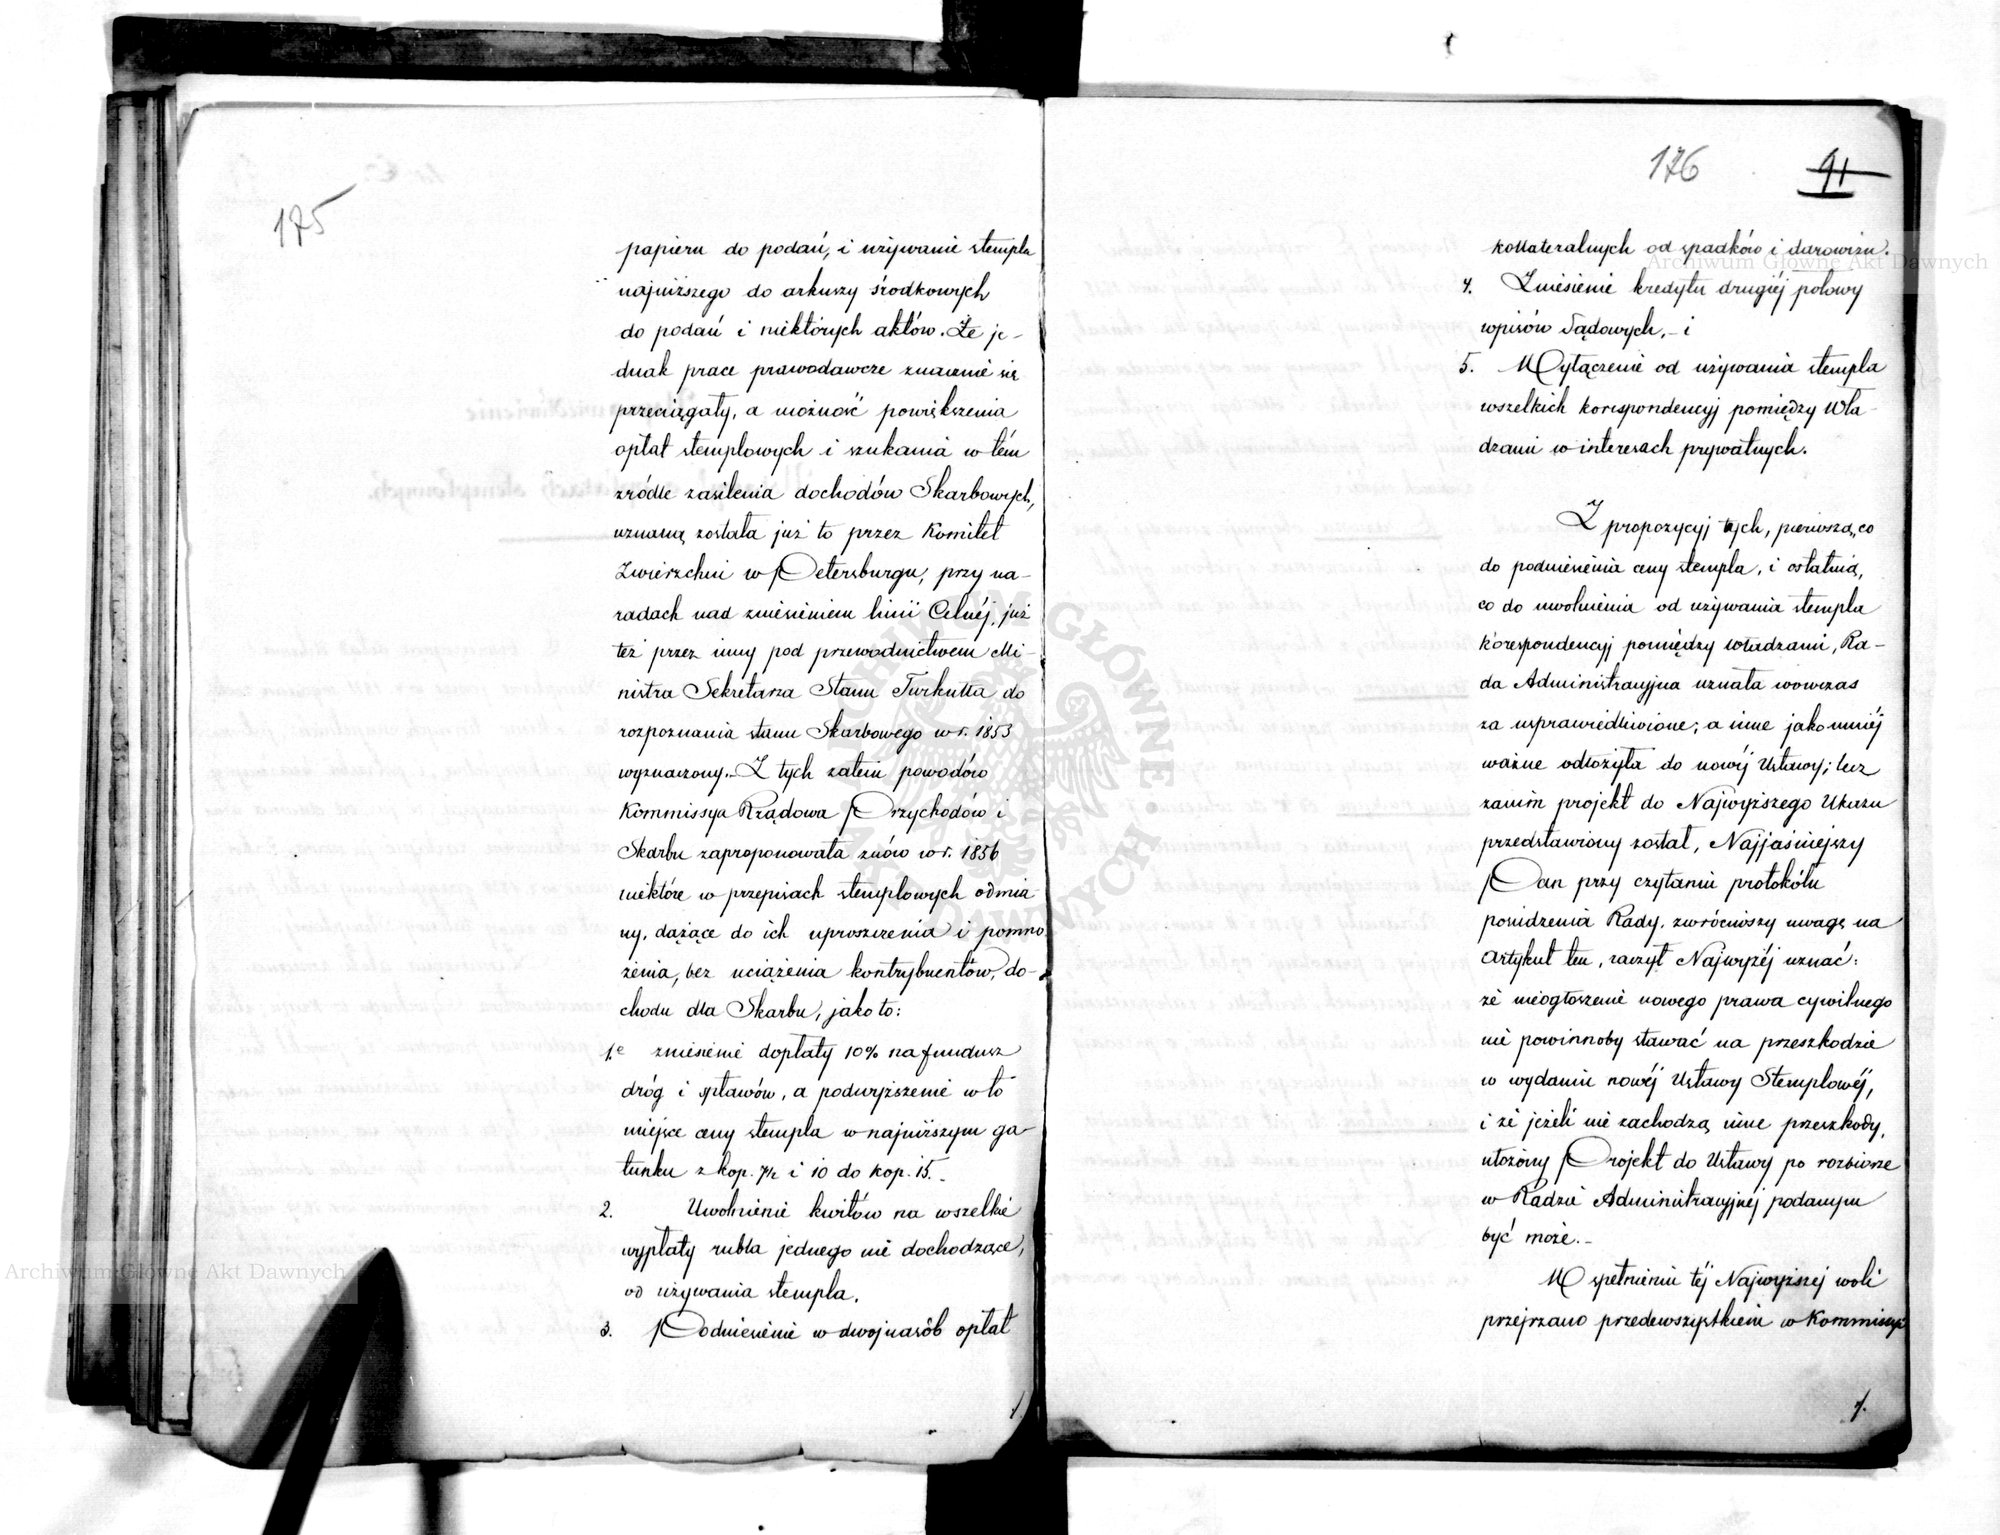 175
papieru do podań, i używanie stempla
najniższego do arkuszy środkowych
do podań i niektórych aktów. Że je-
dnak prace prawodawcze znacznie się
przeciągały, a możność powiększenia
opłat stemplowych i szukania w tém
źródle zasilenia dochodów Skarbowych,
uznaną została już to przez Komitet
Zwierzchni w Petersburgu, przy na-
radach nad zniesieniem linii Celnéj, już
też przez inny pod przewodnictwem Mi-
nistra Sekretarza Stanu Turkułła do
rozpoznania stanu Skarbowego w r. 1853
wyznaczony.- Z tych zatem powodów
Kommissya Rządowa Przychodów i
Skarbu zaproponowała znów w r. 1856
niektóre w przepisach stemplowych odmia-
ny, dążące do ich uproszczenia i pomno
żenia, bez uciążenia kontrybuentów, do-
chodu dla Skarbu, jako to:
1.e zniesienie dopłaty 10% na fundusz
dróg i spławów, a podwyższenie w to
miejsce ceny stempla w najniższym ga-
tunku z kop. 7½ i 10 do kop. 15.-
2. Uwolnienie kwitów na wszelkie
wypłaty rubla jednego nie dochodzące,
od używania stempla.
3. Podniesienie w dwójnasób opłat
1.
176 91
kollateralnych od spadków i darowizn.
4. Zniesienie kredytu drugiéj połowy
wpisów Sądowych,- i
5. Wyłączenie od używania stempla
wszelkich korespondencyj pomiędzy Wła-
dzami w interesach prywatnych.
Z propozycyj tych, pierwszą, co
do podniesienia ceny stempla, i ostatnią,
co do uwolnienia od używania stempla
korespondencyj pomiędzy władzami, Ra-
da Administracyjna uznała wówczas
za usprawiedliwione; a inne jako mniéj
ważne odłożyła do nowéj Ustawy; lecz
zanim projekt do Najwyższego Ukazu
przedstawiony został, Najjaśniejszy
Pan przy czytaniu protokółu
posiedzenia Rady, zwróciwszy uwagę na
Artykuł ten, raczył Najwyżéj uznać:
że nieogłoszenie nowego prawa cywilnego
nie powinnoby stawać na przeszkodzie
w wydaniu nowéj Ustawy Stemplowéj,
i że jeżeli nie zachodzą inne przeszkody,
ułożony Projekt do Ustawy po rozbiorze
w Radzie Administracyjnéj podanym
być może.-
W spełnieniu téj Najwyższej woli
przejrzano przedewszystkiem w Kommissyi
1.
Archiwum Główne Akt Dawnych
Archiwum Główne Akt Dawnych
ARCHIWUM GŁÓWNE AKT DAWNYCH